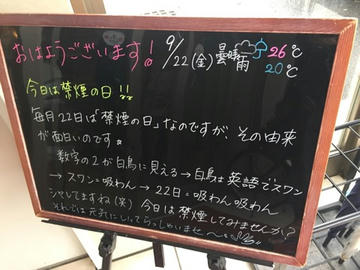 おはようございます!
9/22(金)
曇時々雨
26℃
20℃
今日は禁煙の日!!
毎月22日は「禁煙の日」なのですが、その由来
が面白いのです。
数字の2が白鳥に見える→白鳥は英語でスワン
→スワン=吸わん→22日=吸わん吸わん
シャレてますね(笑)今日は禁煙してみませんか?
それでは元気にいってらっしゃいませ〜